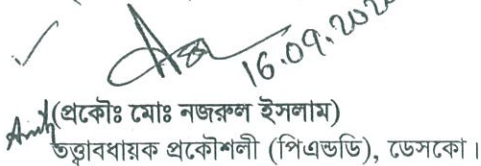 16.09.202
(প্রকৌঃ মোঃ নজরুল ইসলাম)
তত্ত্বাবধায়ক প্রকৌশলী (পিএন্ডডি), ডেসকো।